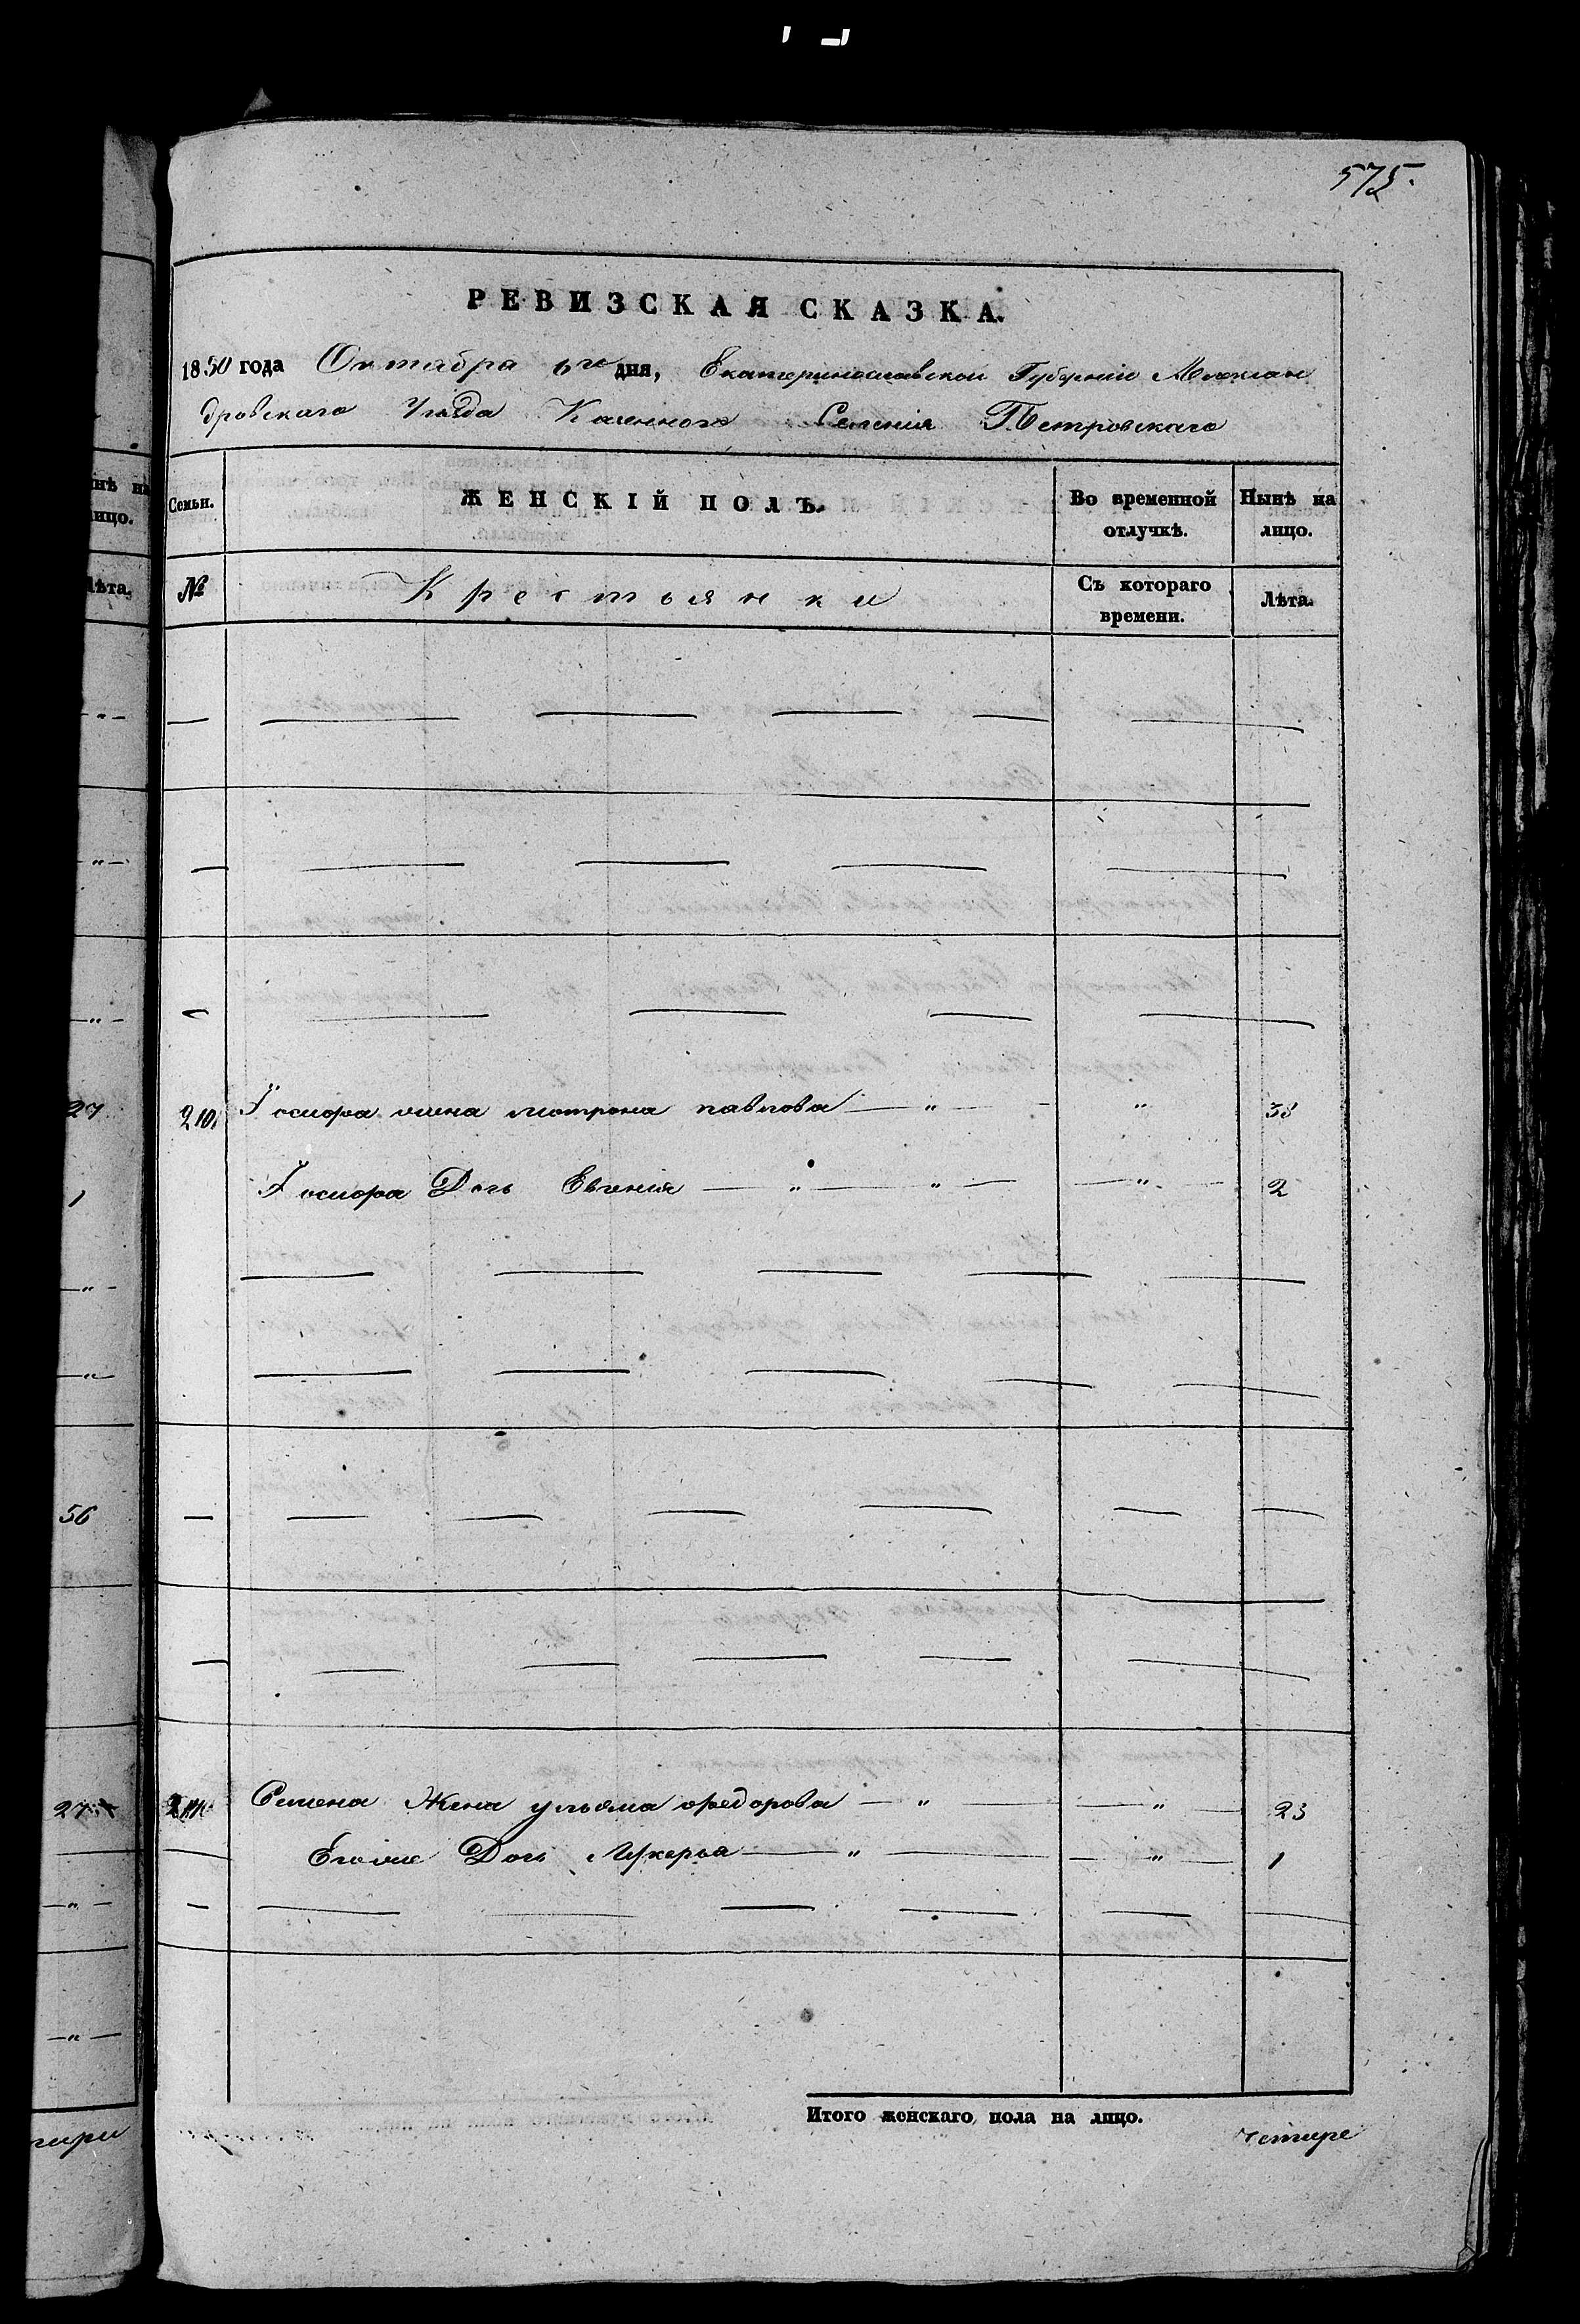 575.
РЕВИЗСКАЯ СКАЗКА.
1850 года Октября 6го дня, Екатеринославской Губерніи Алексан
дровскаго Уѣзда Казенного Селенія Петровскаго
Семьи. ЖЕНСКІЙ ПОЛЪ. Во временной отлучкѣ. Нынѣ на лицо.
№ Крестьянки Съ котораго времени. Лѣта.
210 жена мотрона павлова — „ — „ 38
Дочь Евгенія — „ — „ — „ — 2
Семена Жена ульяма федорова — „ — „ — 23
Его же Дочь Лукерья — „ — „ — 1
Итого женскаго пола на лицо.
четыре
нѣ на
лицо.
Лѣта.
27
1
56
27